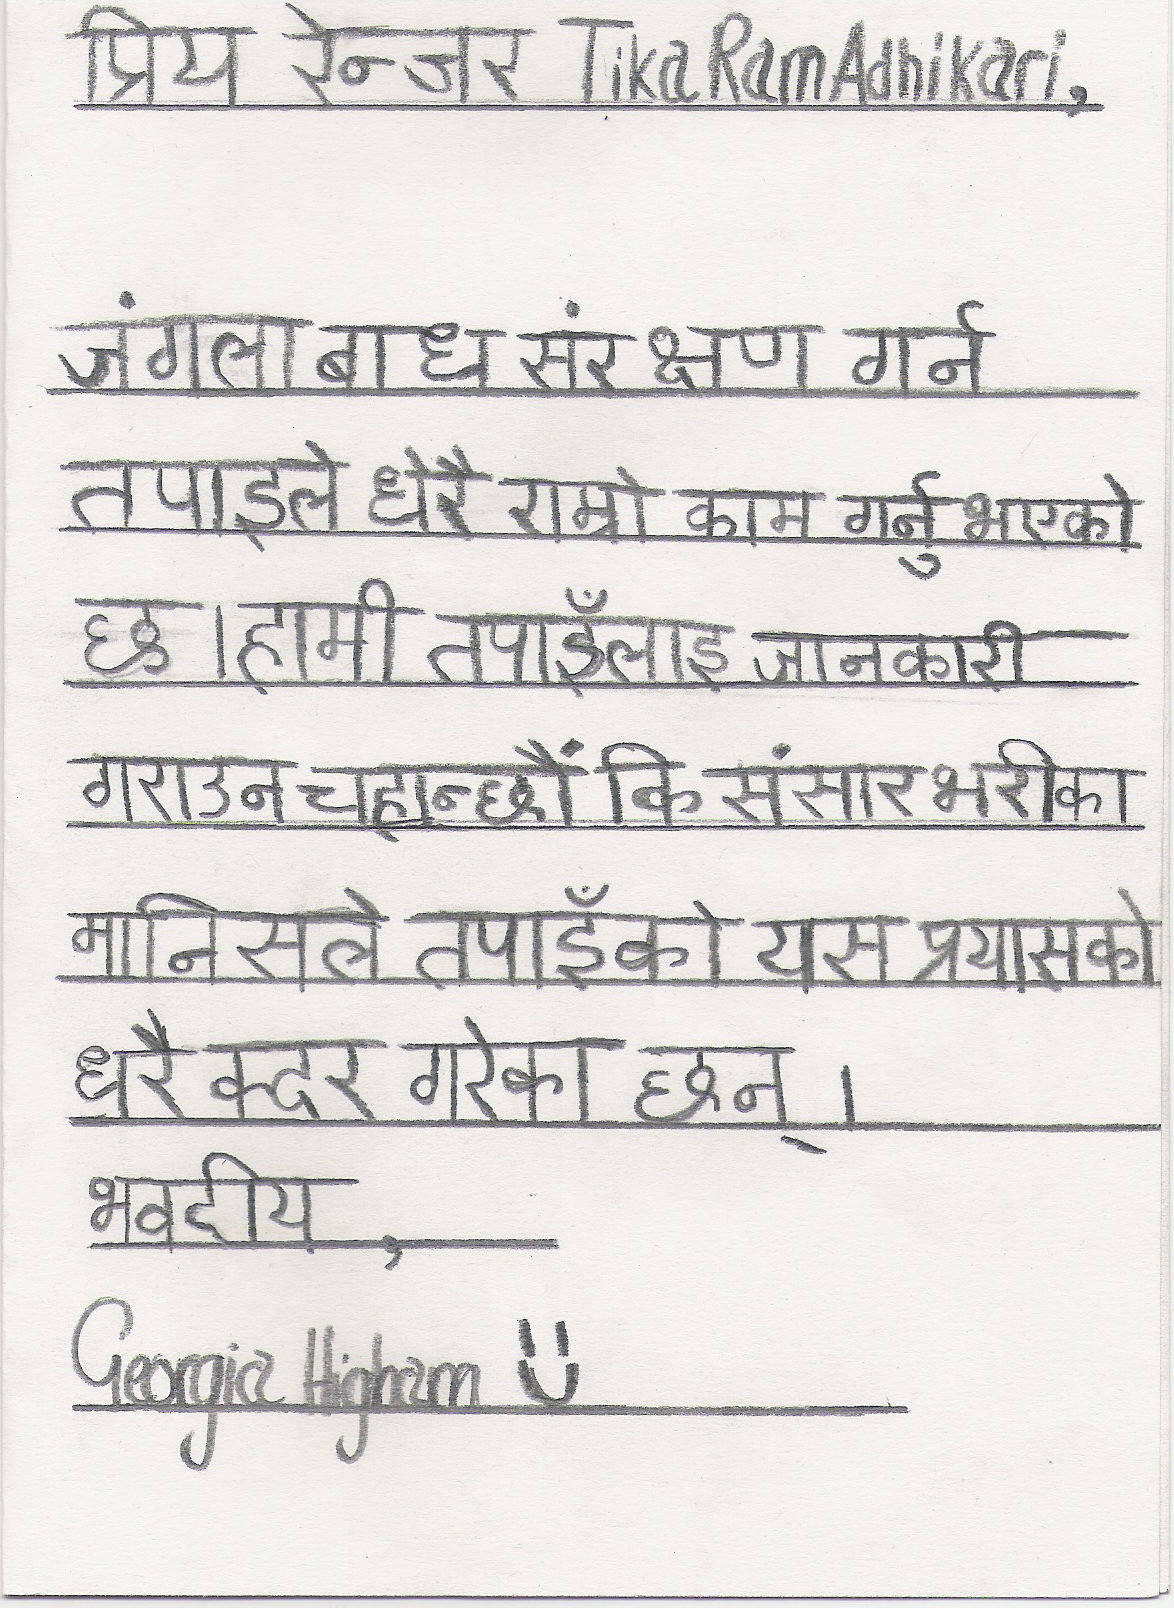 प्रिय रेन्जर Tika Ram Adhikari,
जंगला बाध संरक्षण गर्न
तपाइले धेरै राम्रो काम गर्नु भएको
छ । हामी तपाइँलाइ जानकारी
गराउन चहान्छौं कि संसार भरीका
मानिसले तपाइँको यस प्रयासको
धरै कदर गरेका छन् ।
भवदीय ,
Georgia Higham